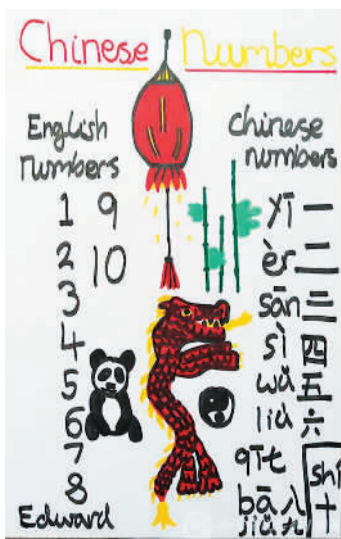 Chinese Numbers
English
numbers
1 9
2 10
3
4
5
6
7
8
Edward
Chinese
numbers
yī 一
èr 二
sān 三
sì 四
wǔ 五
liù 六
qī七
bā 八
jiǔ 九
shí
十